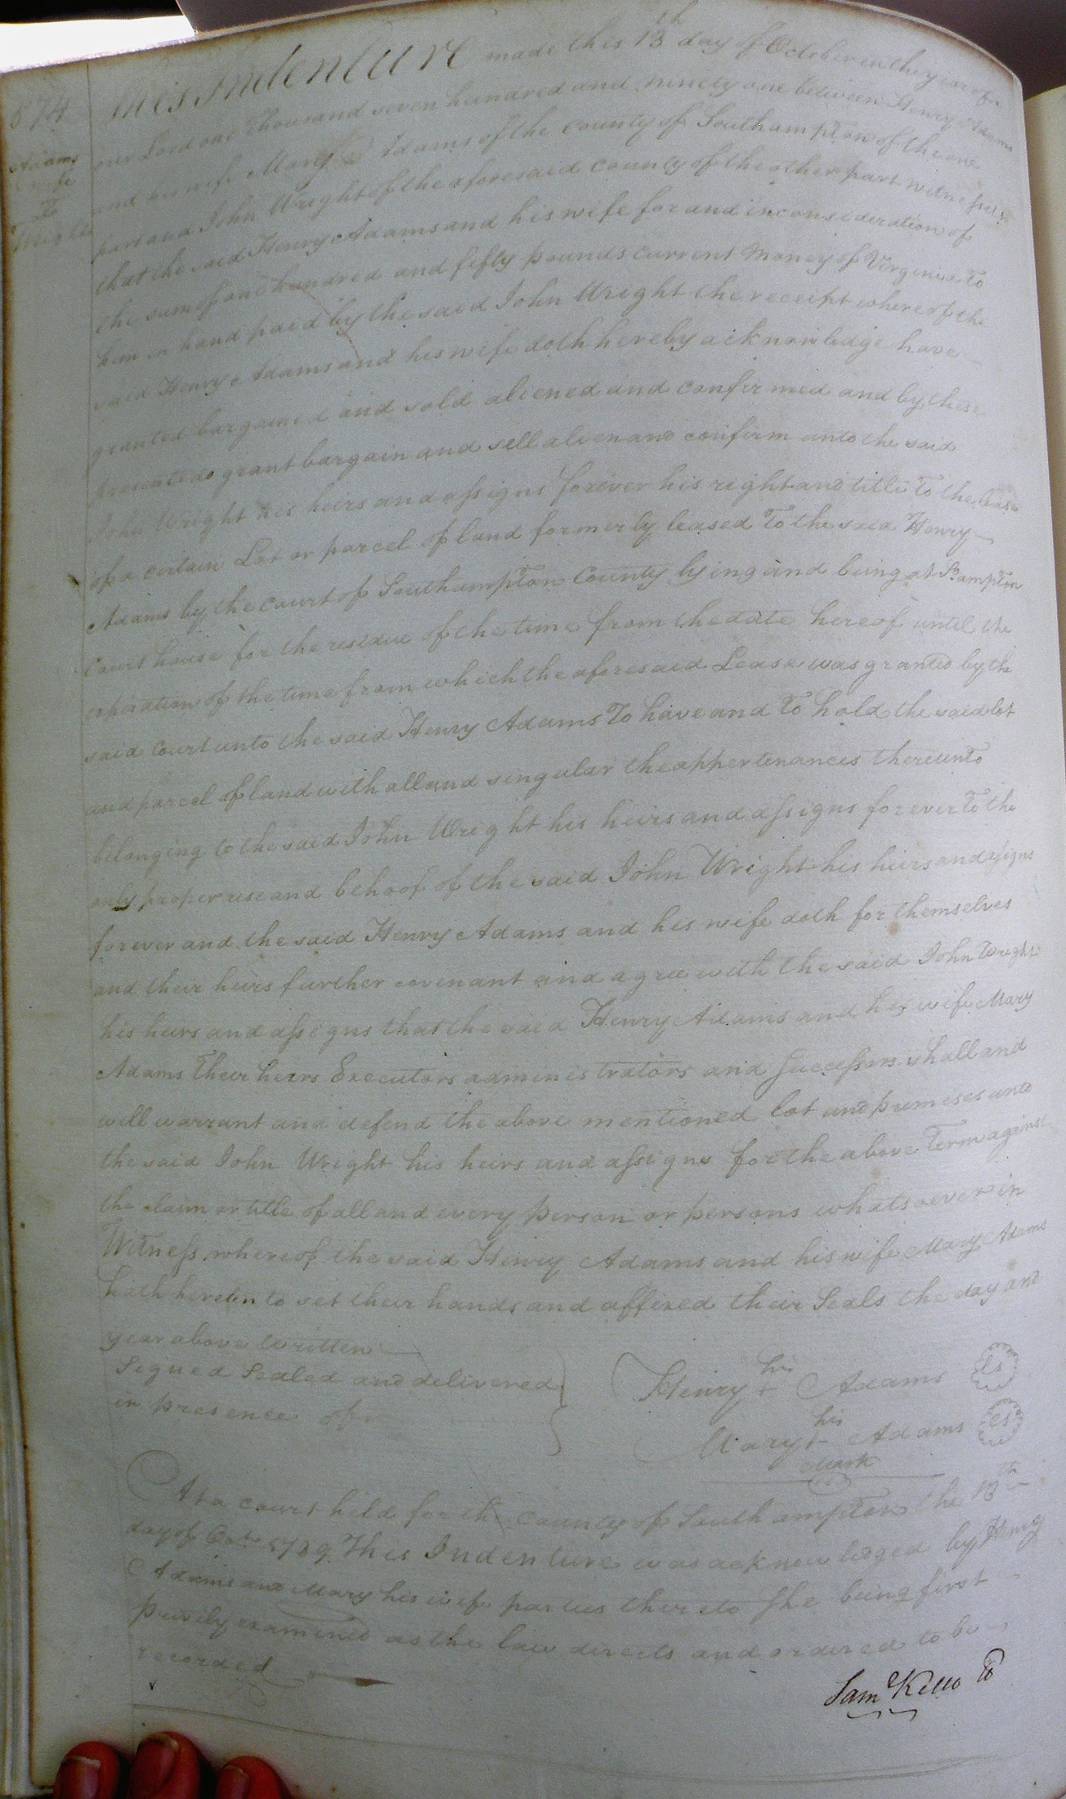 874
Adams
& wife
To
Wright
This Indenture made this 13th day of October in the year of
our Lord one Thousand seven hundred and ninety one between Henry Adams
and his wife Mary Adams of the county of Southampton of the one
part and John Wright of the aforesaid county of the other part witnesseth
that the said Henry Adams and his wife for and in consideration of
the sum of one hundred and fifty pounds current Money of Virginia To
him in hand paid by the said John Wright the receipt whereof the
said Henry Adams and his wife doth hereby acknowledge have
granted bargained and sold aliened and confirmed and by these
presents do grant bargain and sell alien and confirm unto the said
John Wright his heirs and assigns forever his right and title To the lease
of a certain Lot or parcel of land formerly leased To the said Henry
Adams by the court of Southampton County lying and being at
Court house for the residue of the time from the date hereof until the
expiration of the time from which the aforesaid Lease was granted by the
said court unto the said Henry Adams To have and To hold the said lot
and parcel of land with all and singular the appertenances thereunto
belonging to the said John Wright his heirs and assigns forever To the
only proper use and behoof of the said John Wright his heirs and assigns
forever and the said Henry Adams and his wife doth for themselves
and their heirs further covenant and agree with the said John Wright
his heirs and assigns that the said Henry Adams and his wife Mary
Adams Their heirs Executors administrators and Successors shall and
will warrant and defend the above mentioned lot and premeses unto
the said John Wright his heirs and assigns for the above Term against
the claim or title of all and every person or persons whatsoever in
Witness whereof the said Henry Adams and his wife Mary Adams
hath hereunto set their hands and affixed their Seals the day and
year above written
Signed Sealed and delivered
in presence of
his
Henry + Adams Ls
his
Mary + Adams Ls
Mark
At a court held for the county of Southampton the 13th
day of This Indenture was acknowledged by Henry
Adams and Mary his wife parties thereto She being first
privily examined as the law directs and ordered to be
recorded
Saml Kello